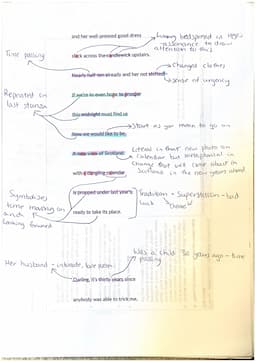 and her well-pressed good dress
slack across the candlewick upstairs.
Nearly half-ten already and her not shifted!
If we're to even hope to prosper
this midnight must find us
how we would like to be.
A new view of Scotland
with a dangling calendar
is propped under last year's,
ready to take its place.
Darling, it's thirty years since
anybody was able to trick me,
Time passing
Repeated in
last stanza
Symbolises
time moving on
and
looking forward
Her husband - intimate, love poem
bedspread in
assonance to draw
attention to this
Changed clothes
sense of urgency
Start as you mean to go on
Literal in that new photo on
calendar but metaphorical in
change that will come about in
Scotland in the new years ahead
Tradition + Superstition - bad
luck
Was a child 30 years ago - time
passing